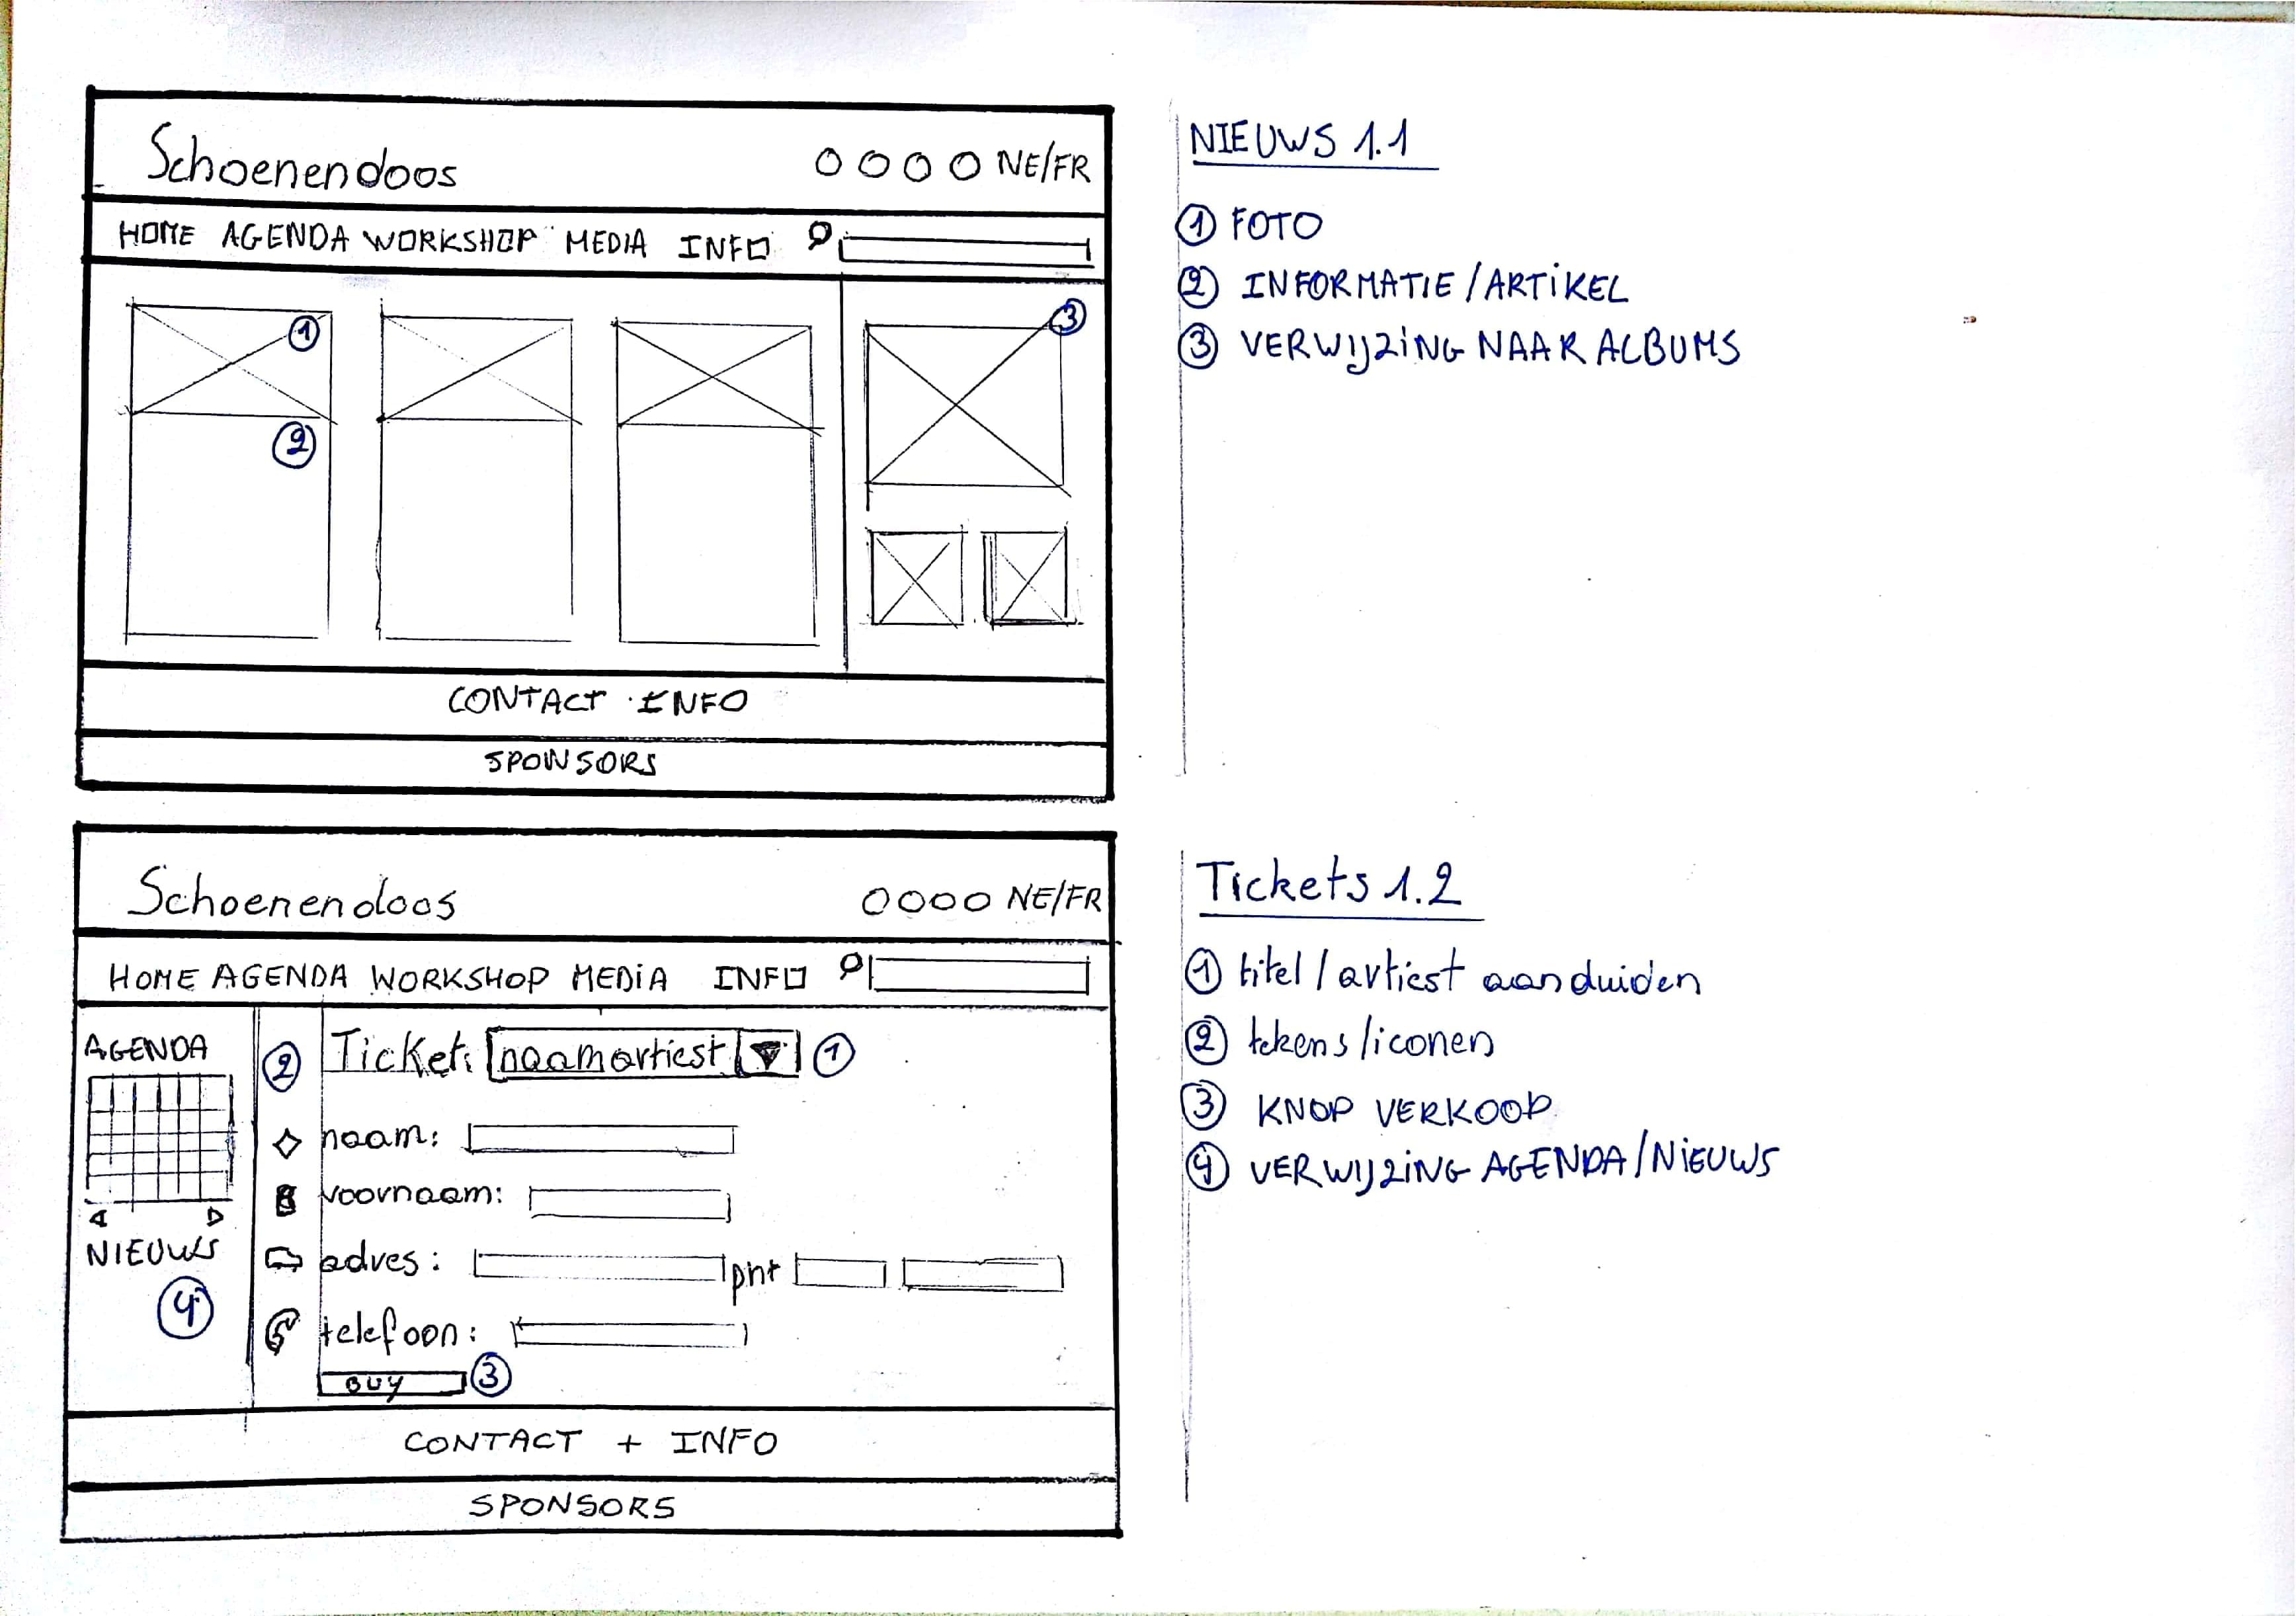 Schoenendoos NE/FR
HOME AGENDA WORKSHOP MEDIA INFO
1
3
2
CONTACT · INFO
SPONSORS
NIEUWS 1.1
1 FOTO
2 INFORMATIE/ARTIKEL
3 VERWIJZING NAAR ALBUMS
Schoenendoos NE/FR
HOME AGENDA WORKSHOP MEDIA INFO
AGENDA
NIEUWS
4
2 Ticket: naam artiest 1
naam:
voornaam:
adres:
telefoon:
BUY 3
CONTACT + INFO
SPONSORS
Tickets 1.2
1 titel/artiest aanduiden
2 tekens/iconen
3 KNOP VERKOOP
4 VERWIJZING AGENDA/NIEUWS